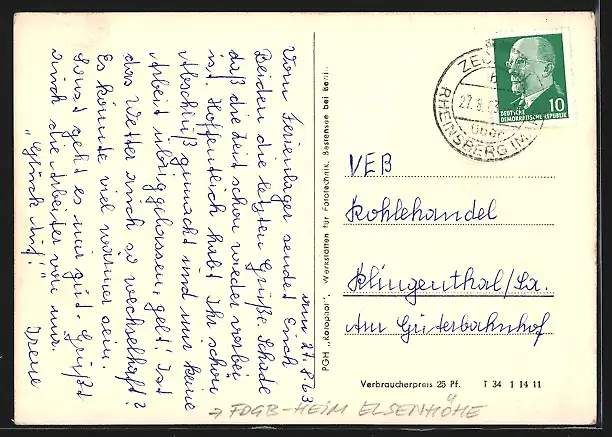 am 27.8.63
Vom Ferienlager sendet Euch
Beiden die letzten Grüße. Schade
daß die Zeit schon wieder vorbei
ist. Hoffentlich habt Ihr schön
Abschluß gemacht und mir keine
Arbeit übriggelassen, gel! Ist
das Wetter auch so wechselhaft?
Es könnte viel wärmer sein.
Sonst geht es mir gut. Grüßt
auch die Arbeiter von mir.
„Glück Auf!"
Irene
PGH „Rotophot", Werkstätten für Fototechnik, Bestensee bei Berlin
ZE
27.8.63
über
RHEINSBERG (MARK)
DEUTSCHE
DEMOKRATISCHE REPUBLIK
10
VEB
Kohlehandel
Klingenthal/Sa.
Am Güterbahnhof
Verbraucherpreis 25 Pf. T 34 1 14 11
→ FDGB-HEIM ELSENHÖHE